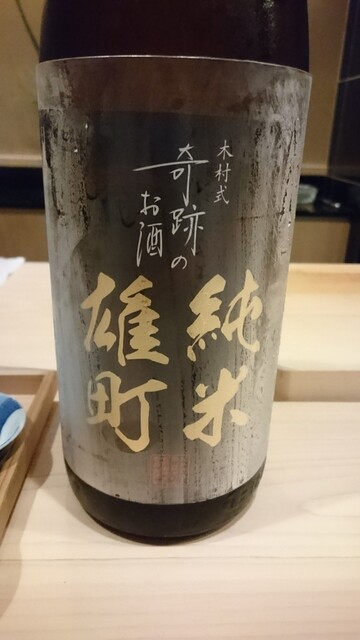 木村式
奇跡の
お酒
純米
雄町